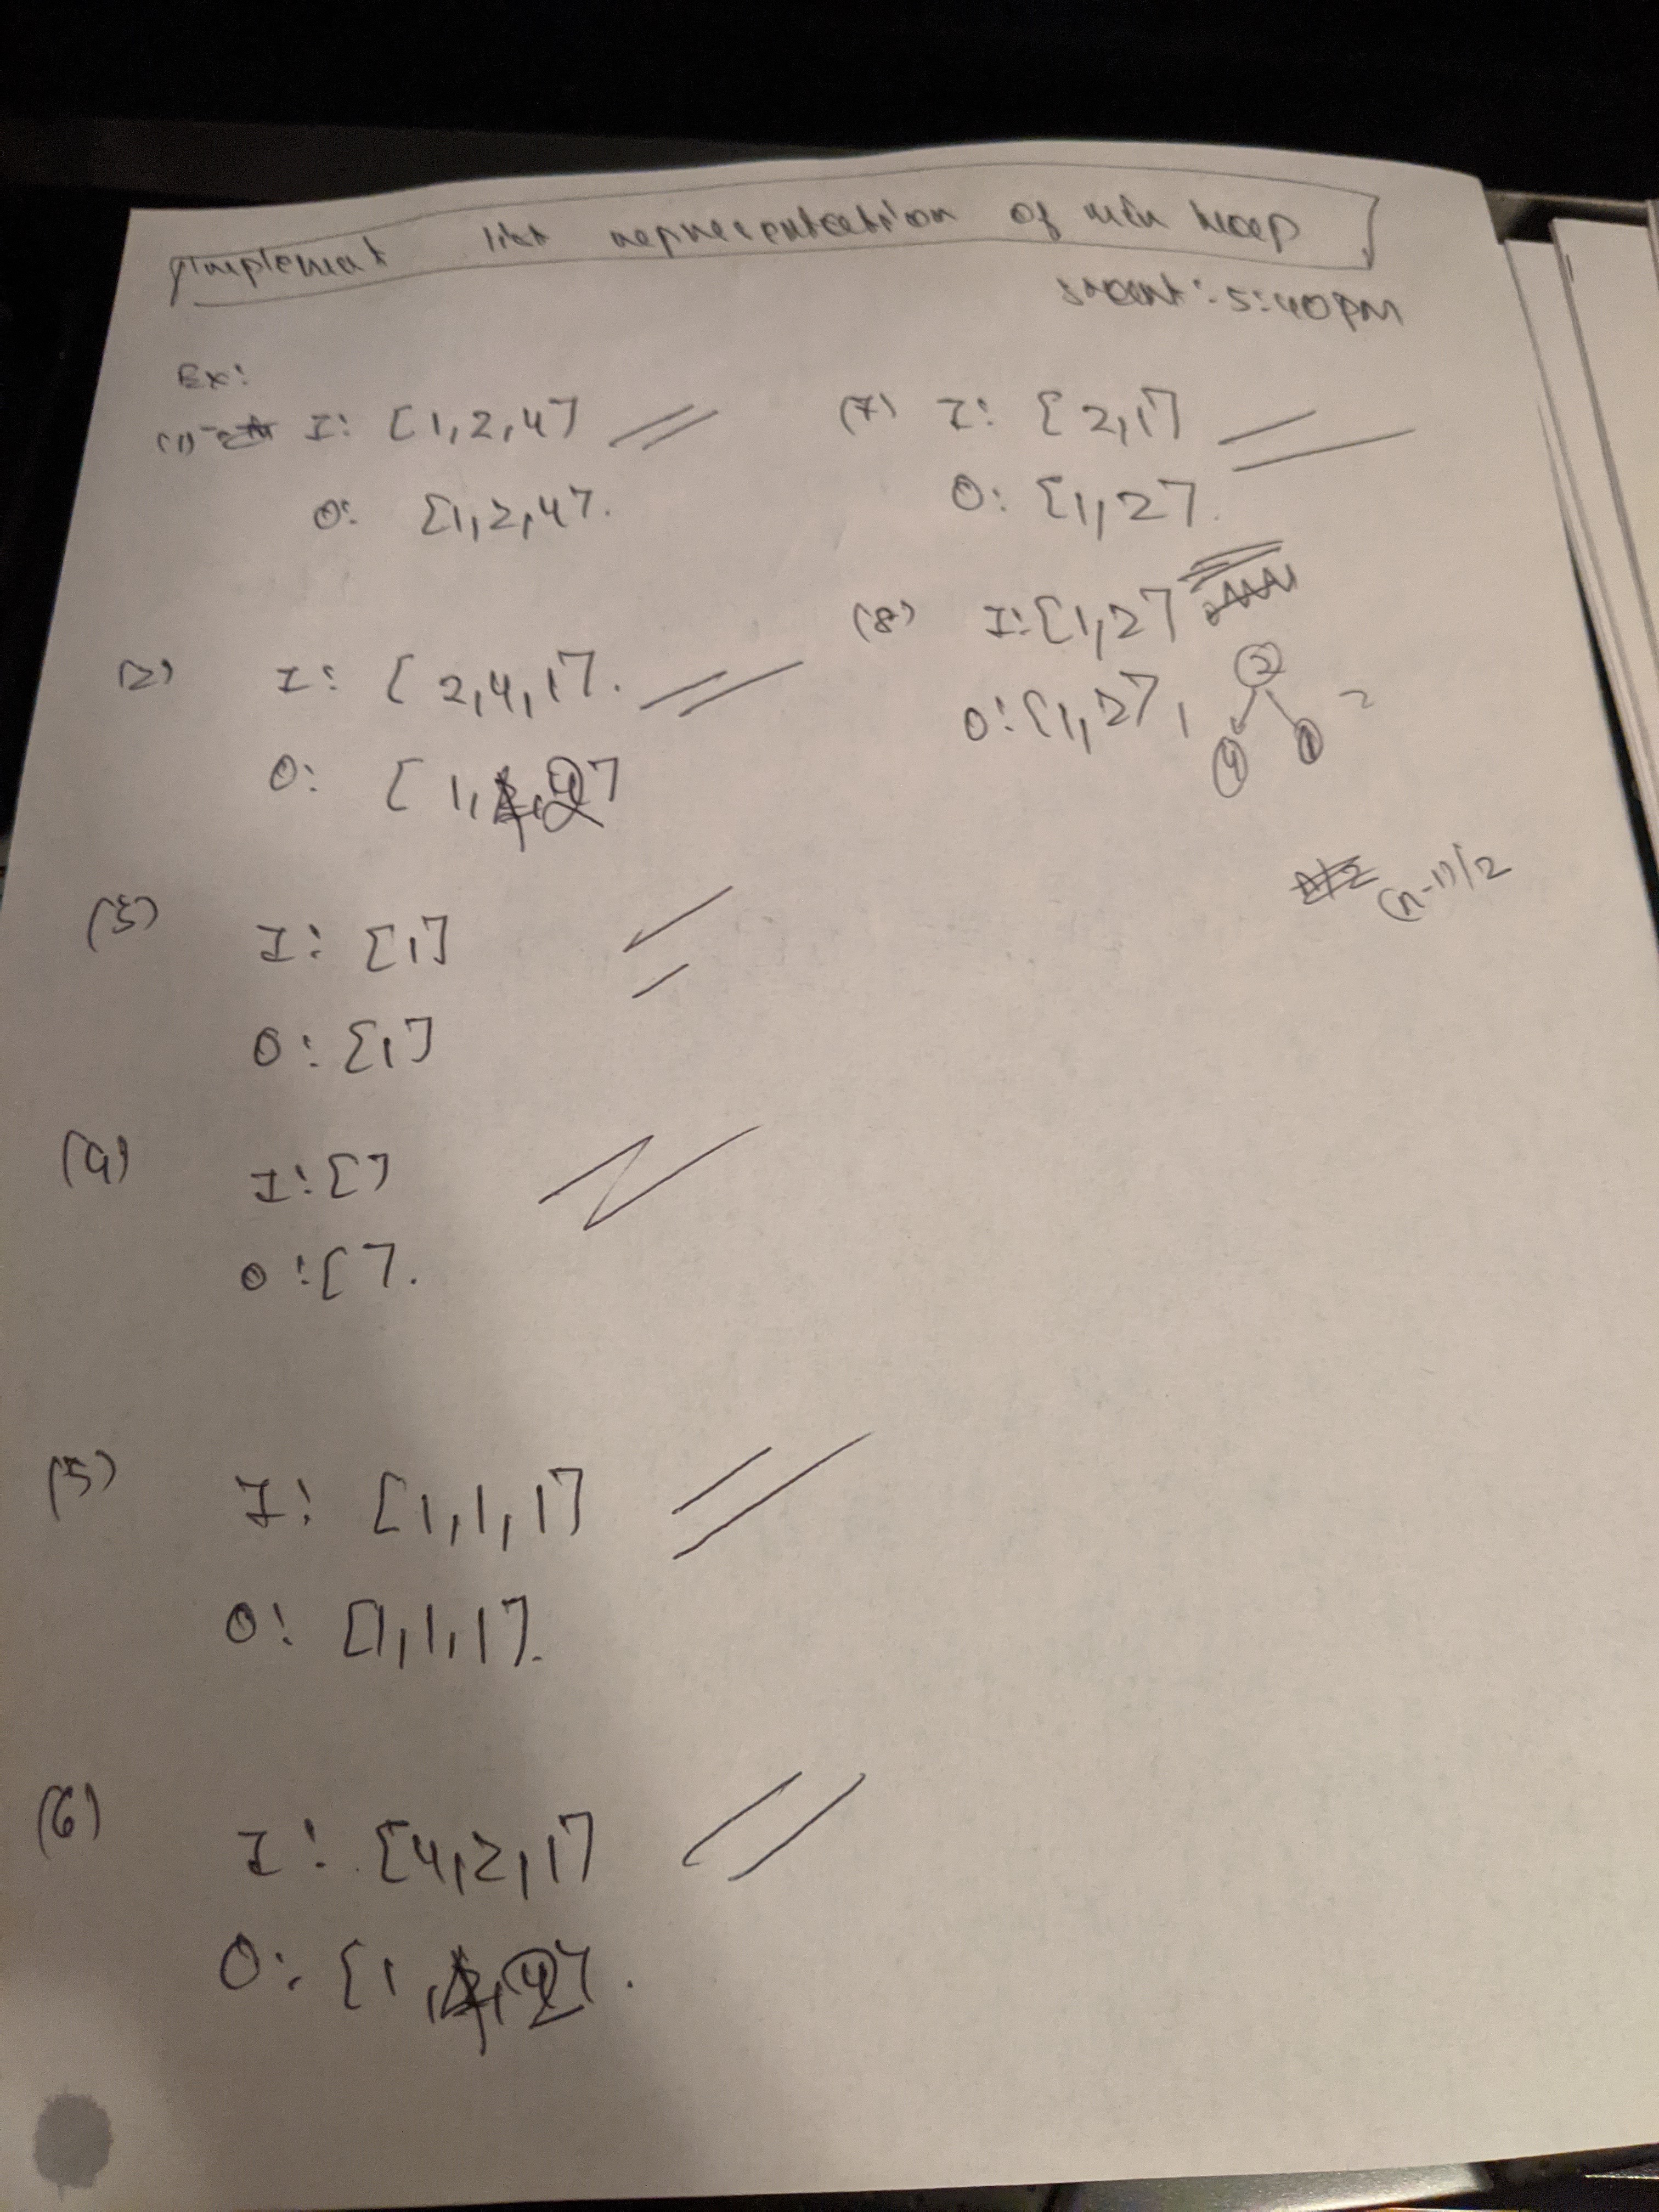 Implement list representation of min heap
start: 5:40PM
Ex:
(1) I: [1,2,4]
O: [1,2,4].
(2) I: [2,4,1].
O: [1,4,2]
(3) I: [1]
O: [1]
(4) I: []
O: [].
(5) I: [1,1,1]
O: [1,1,1].
(6) I: [4,2,1]
O: [1,4,2].
(7) I: [2,1]
O: [1,2].
(8) I: [1,2]
O: [1,2],
2
4 1
(n-1)/2